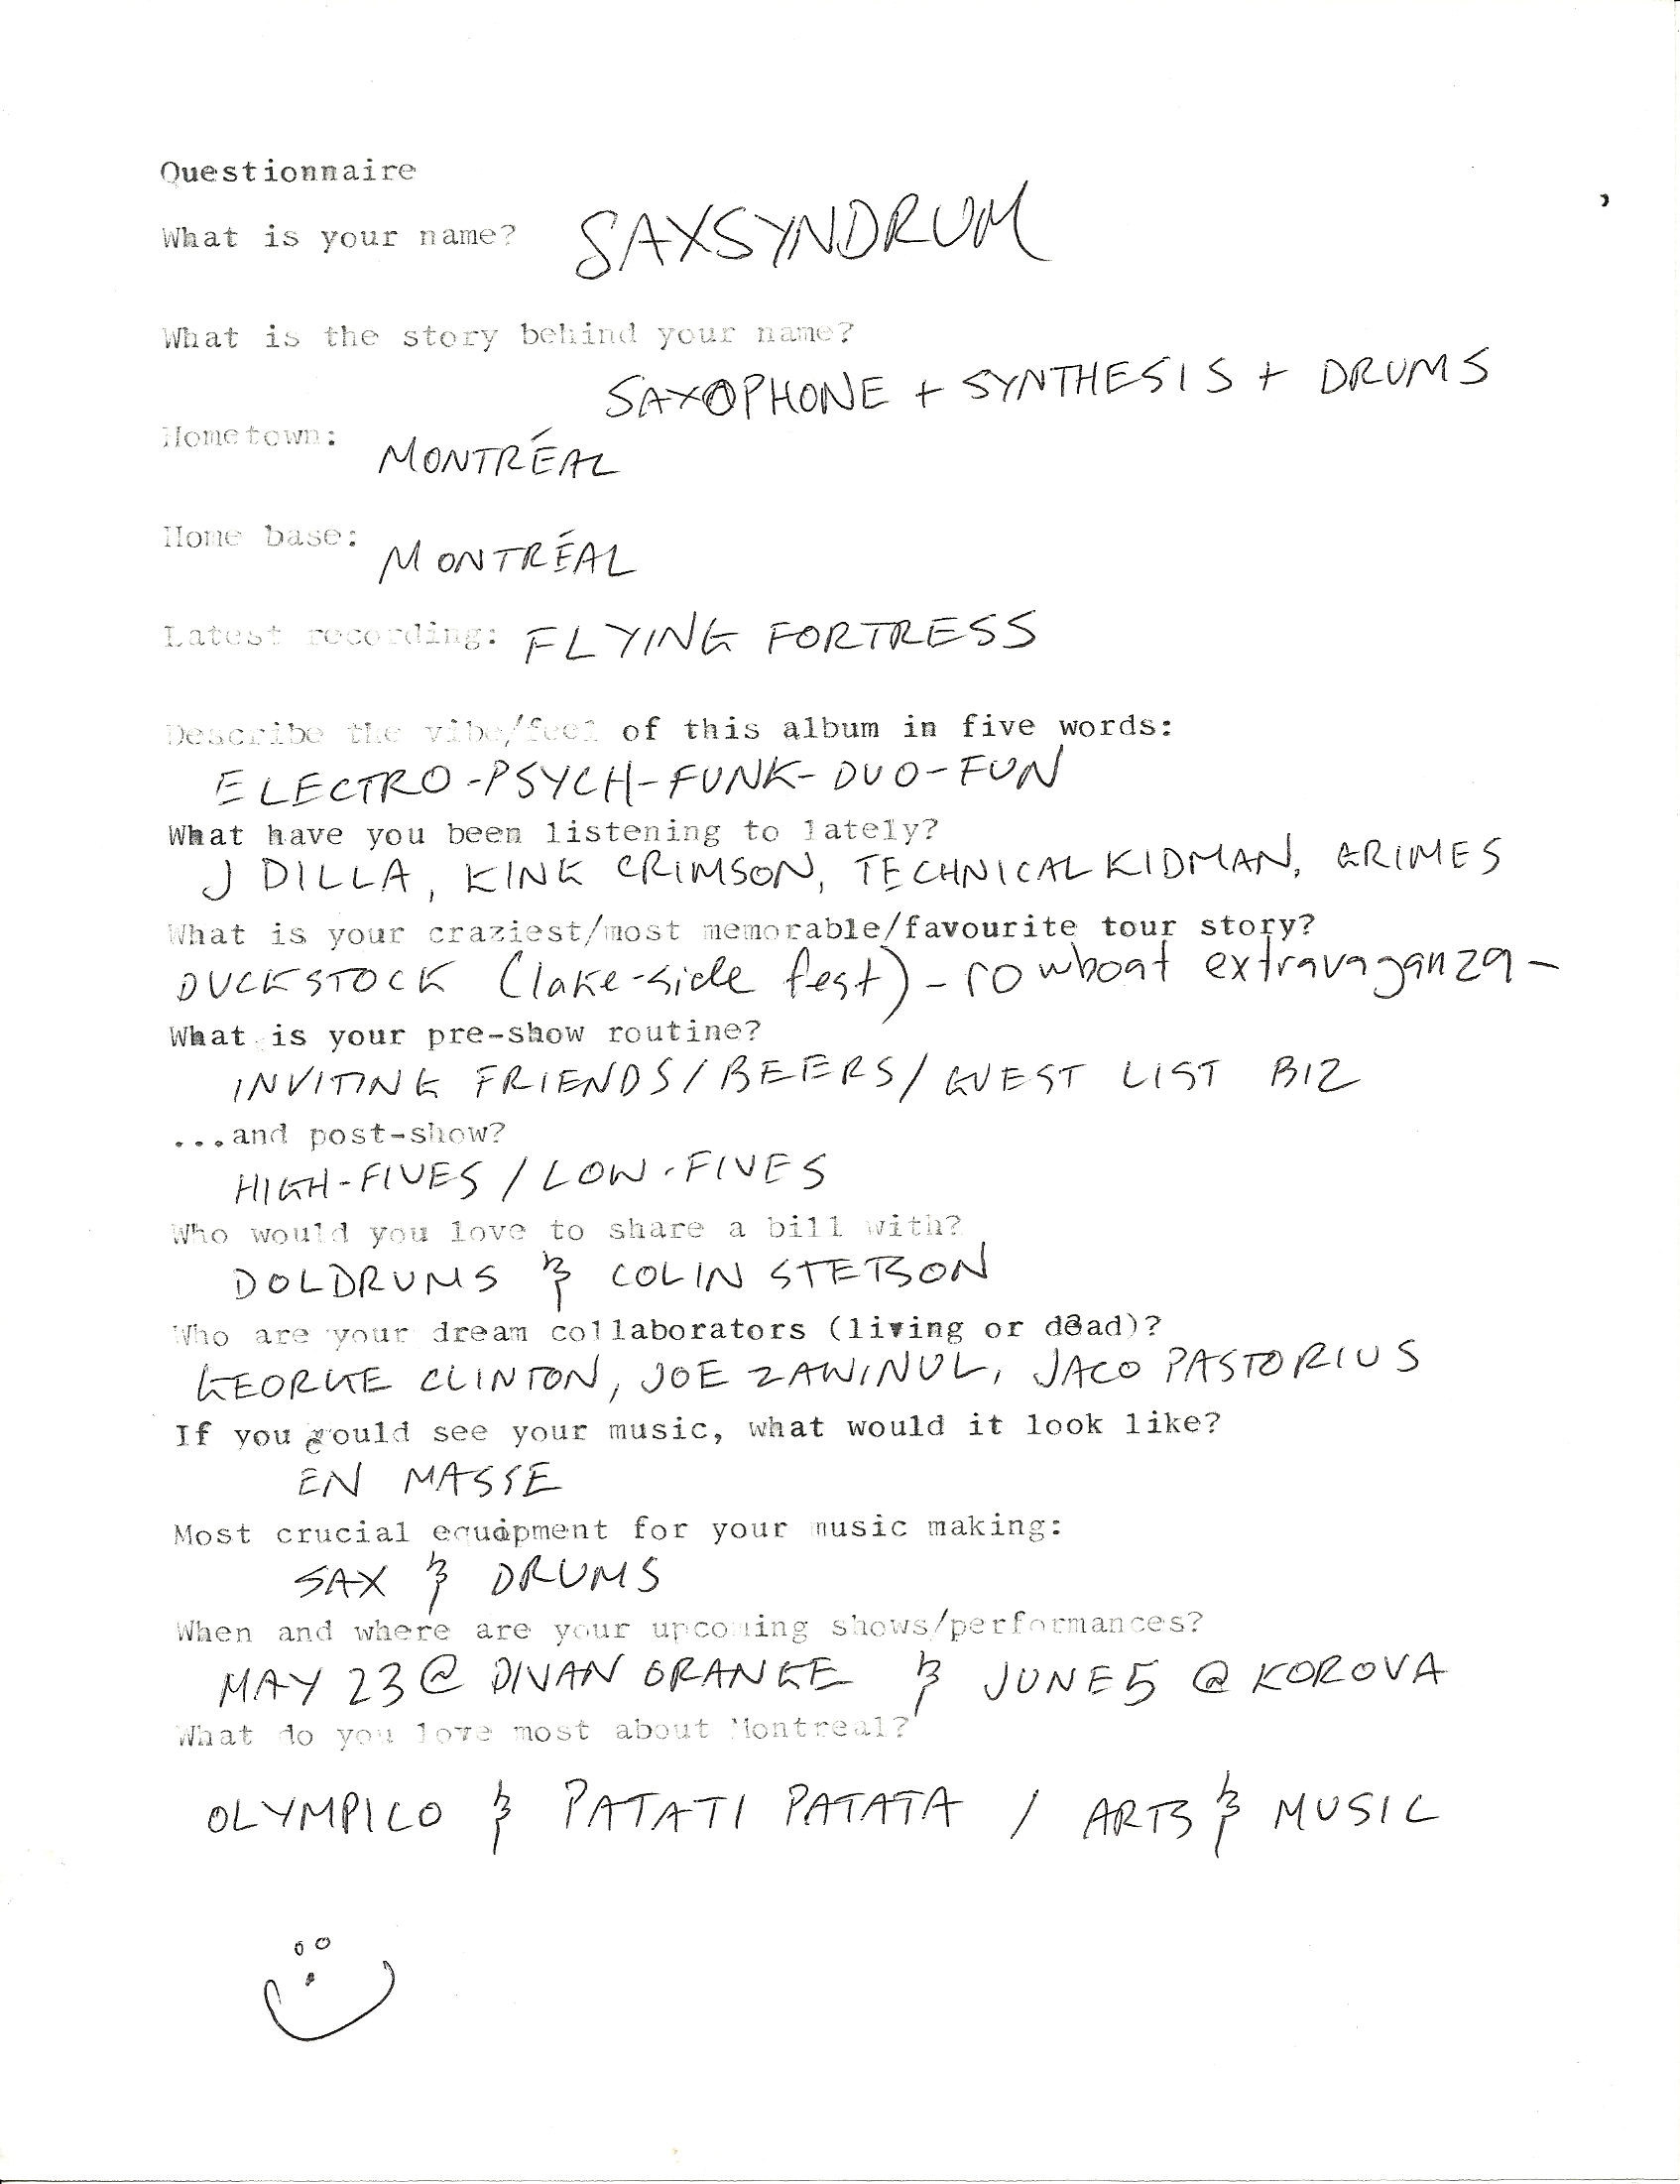 Questionnaire
What is your name? SAXSYNDRUM
What is the story behind your name?
SAXOPHONE + SYNTHESIS + DRUMS
Hometown: MONTRÉAL
Home base: MONTRÉAL
Latest recording: FLYING FORTRESS
Describe the vibe/feel of this album in five words:
ELECTRO-PSYCH-FUNK-DUO-FUN
What have you been listening to lately?
J DILLA, KING CRIMSON, TECHNICAL KIDMAN, GRIMES
What is your craziest/most memorable/favourite tour story?
DUCKSTOCK (lake-side fest) - rowboat extravaganza -
What is your pre-show routine?
INVITING FRIENDS / BEERS / GUEST LIST BIZ
...and post-show?
HIGH-FIVES / LOW-FIVES
Who would you love to share a bill with?
DOLDRUMS & COLIN STETSON
Who are your dream collaborators (living or dead)?
GEORGE CLINTON, JOE ZAWINUL, JACO PASTORIUS
If you could see your music, what would it look like?
EN MASSE
Most crucial equipment for your music making:
SAX & DRUMS
When and where are your upcoming shows/performances?
MAY 23 @ DIVAN ORANGE & JUNE 5 @ KOROVA
What do you love most about Montreal?
OLYMPICO & PATATI PATATA / ARTS & MUSIC